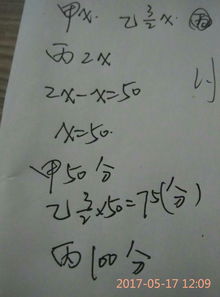 甲x. 乙3/2x.
丙2x
2x-x=50
x=50.
甲50分
乙3/2×50=75(分)
丙100分
2017-05-17 12:09